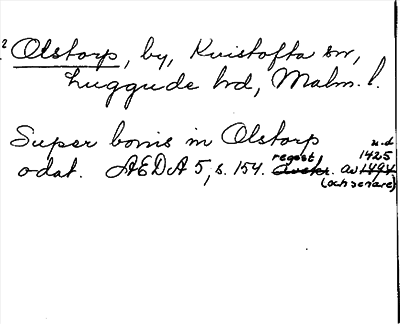 2 Olstorp, by, Kvistofta sn,
Luggude hd, Malm. l.
Super bonis in Olstorp
odat. AEDA 5, s. 154. regest. av 1425 n.d
(och senare)